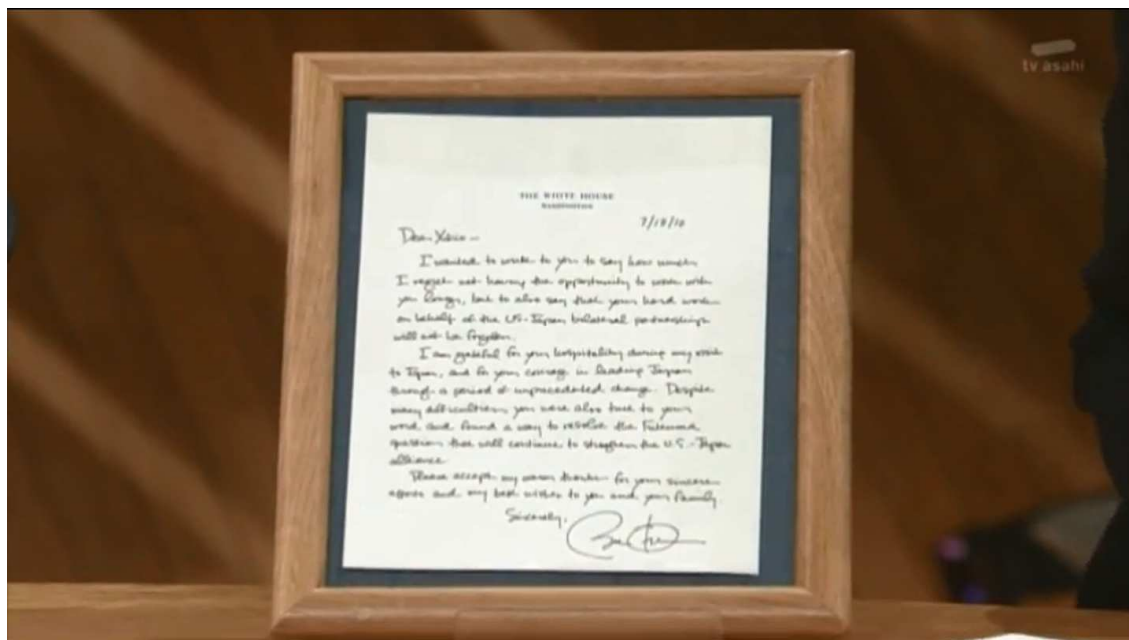 tv asahi
THE WHITE HOUSE
WASHINGTON
7/18/10
Dear Yukio —
I wanted to write to you to say how much
I regret not having the opportunity to work with
you longer, but to also say that your hard work
on behalf of the US-Japan bilateral partnership
will not be forgotten.
I am grateful for your hospitality during my visit
to Japan, and for your courage in leading Japan
through a period of unprecedented change. Despite
many difficulties, you were also true to your
word and found a way to resolve the Futenma
question that will continue to strengthen the U.S.-Japan
alliance.
Please accept my warm thanks for your sincere
efforts and my best wishes to you and your family.
Sincerely,